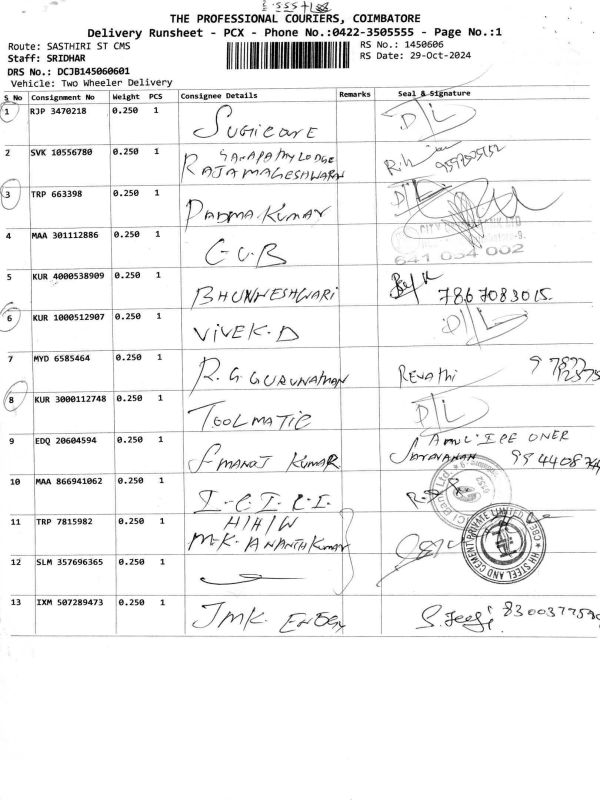 THE PROFESSIONAL COURIERS, COIMBATORE
Delivery Runsheet - PCX - Phone No.:0422-3505555 - Page No.:1
Route: SASTHIRI ST CMS RS No.: 1450606
Staff: SRIDHAR RS Date: 29-Oct-2024
DRS No.: DCJB145060601
Vehicle: Two Wheeler Delivery
S No Consignment No Weight PCS Consignee Details Remarks Seal & Signature
1 RJP 3470218 0.250 1 SUGICARE D/L
2 SVK 10556780 0.250 1 RAJAMAGESHWARAN
3 TRP 663398 0.250 1 PADMA.KUMAR D/L
4 MAA 301112886 0.250 1 C.U.B 641 034 002
5 KUR 4000538909 0.250 1 BHUNNESHWARI 7867083015.
6 KUR 1000512907 0.250 1 VIVEK.D D/L
7 MYD 6585464 0.250 1 R.G.GURUNATHAN REVATHI
8 KUR 3000112748 0.250 1 TOOLMATIC D/L
9 EDQ 20604594 0.250 1 S MANOJ KUMAR SARAVANAN
10 MAA 866941062 0.250 1 I.C.I.C.I.
11 TRP 7815982 0.250 1 H/H/W
M.K. ANANTH KUMAR
HH STEEL AND CEMENT PRIVATE LIMITED
12 SLM 357696365 0.250 1
13 IXM 507289473 0.250 1 JMK.